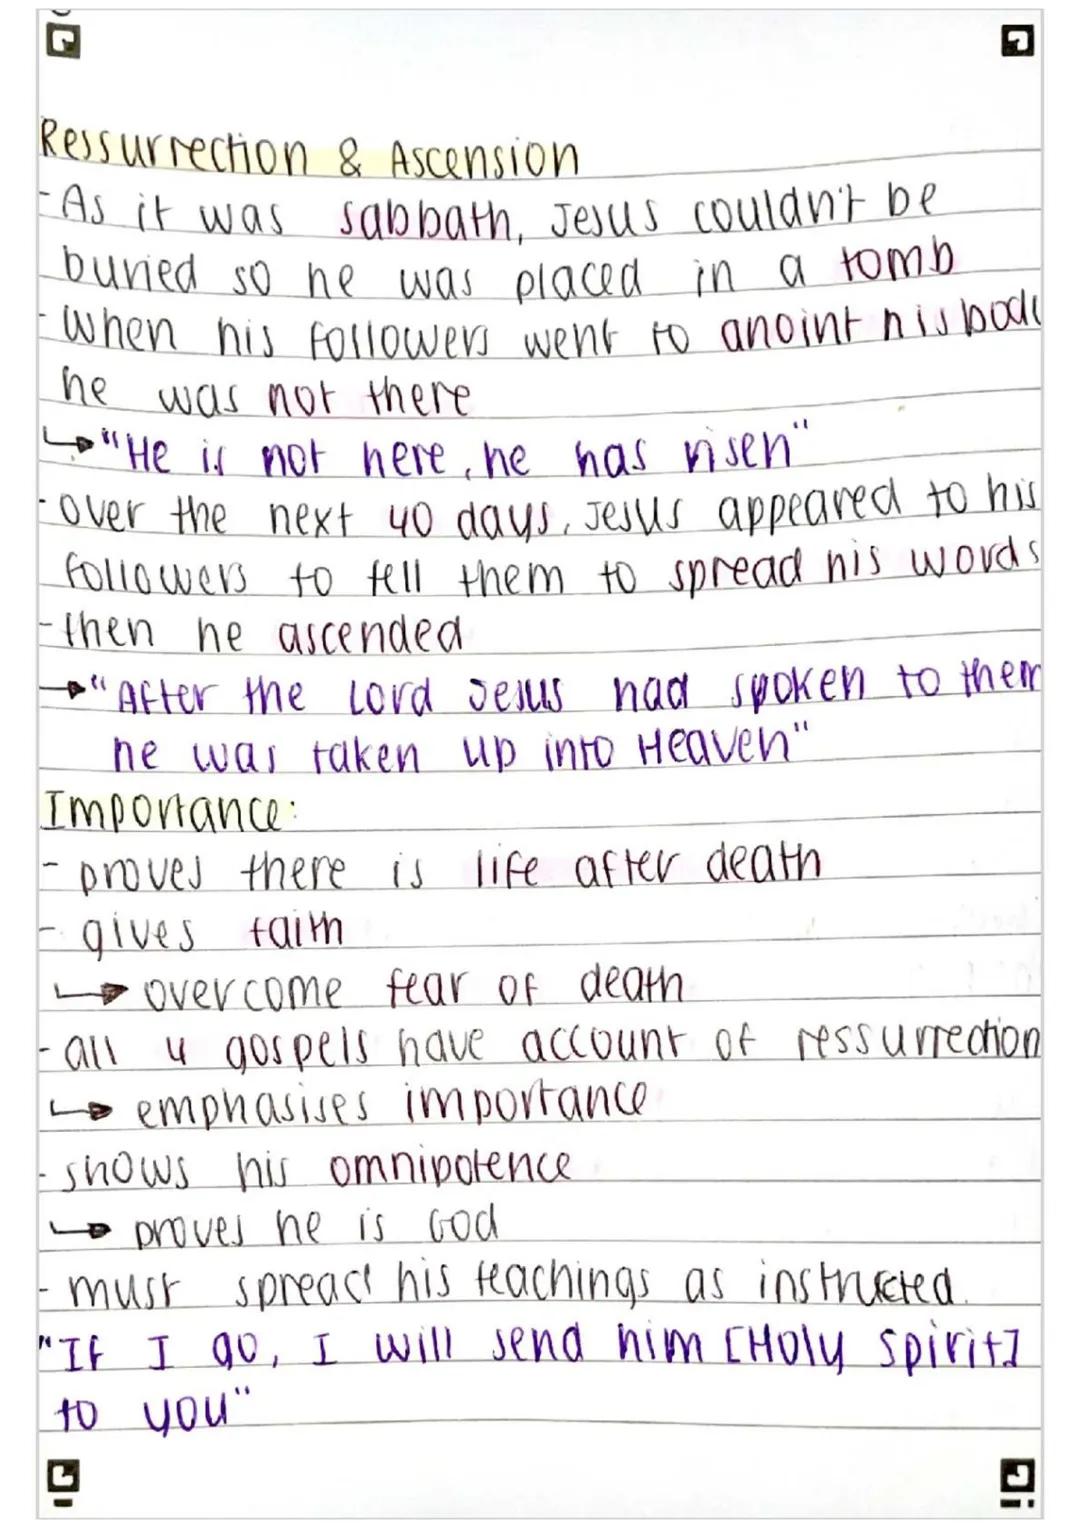 Ressurrection & Ascension
- As it was sabbath, Jesus couldn't be
buried so he was placed in a tomb
- When his followers went to anoint his body
he was not there
↳ "He is not here, he has risen"
- over the next 40 days, Jesus appeared to his
followers to tell them to spread his words
- then he ascended
→ "After the Lord Jesus had spoken to them
he was taken up into Heaven"
Importance:
- proves there is life after death
- gives faith
↳ overcome fear of death
- all 4 gospels have account of ressurrection
↳ emphasises importance
- shows his omnipotence
↳ proves he is God
- must spread his teachings as instructed.
"If I go, I will send him [Holy Spirit]
to you"